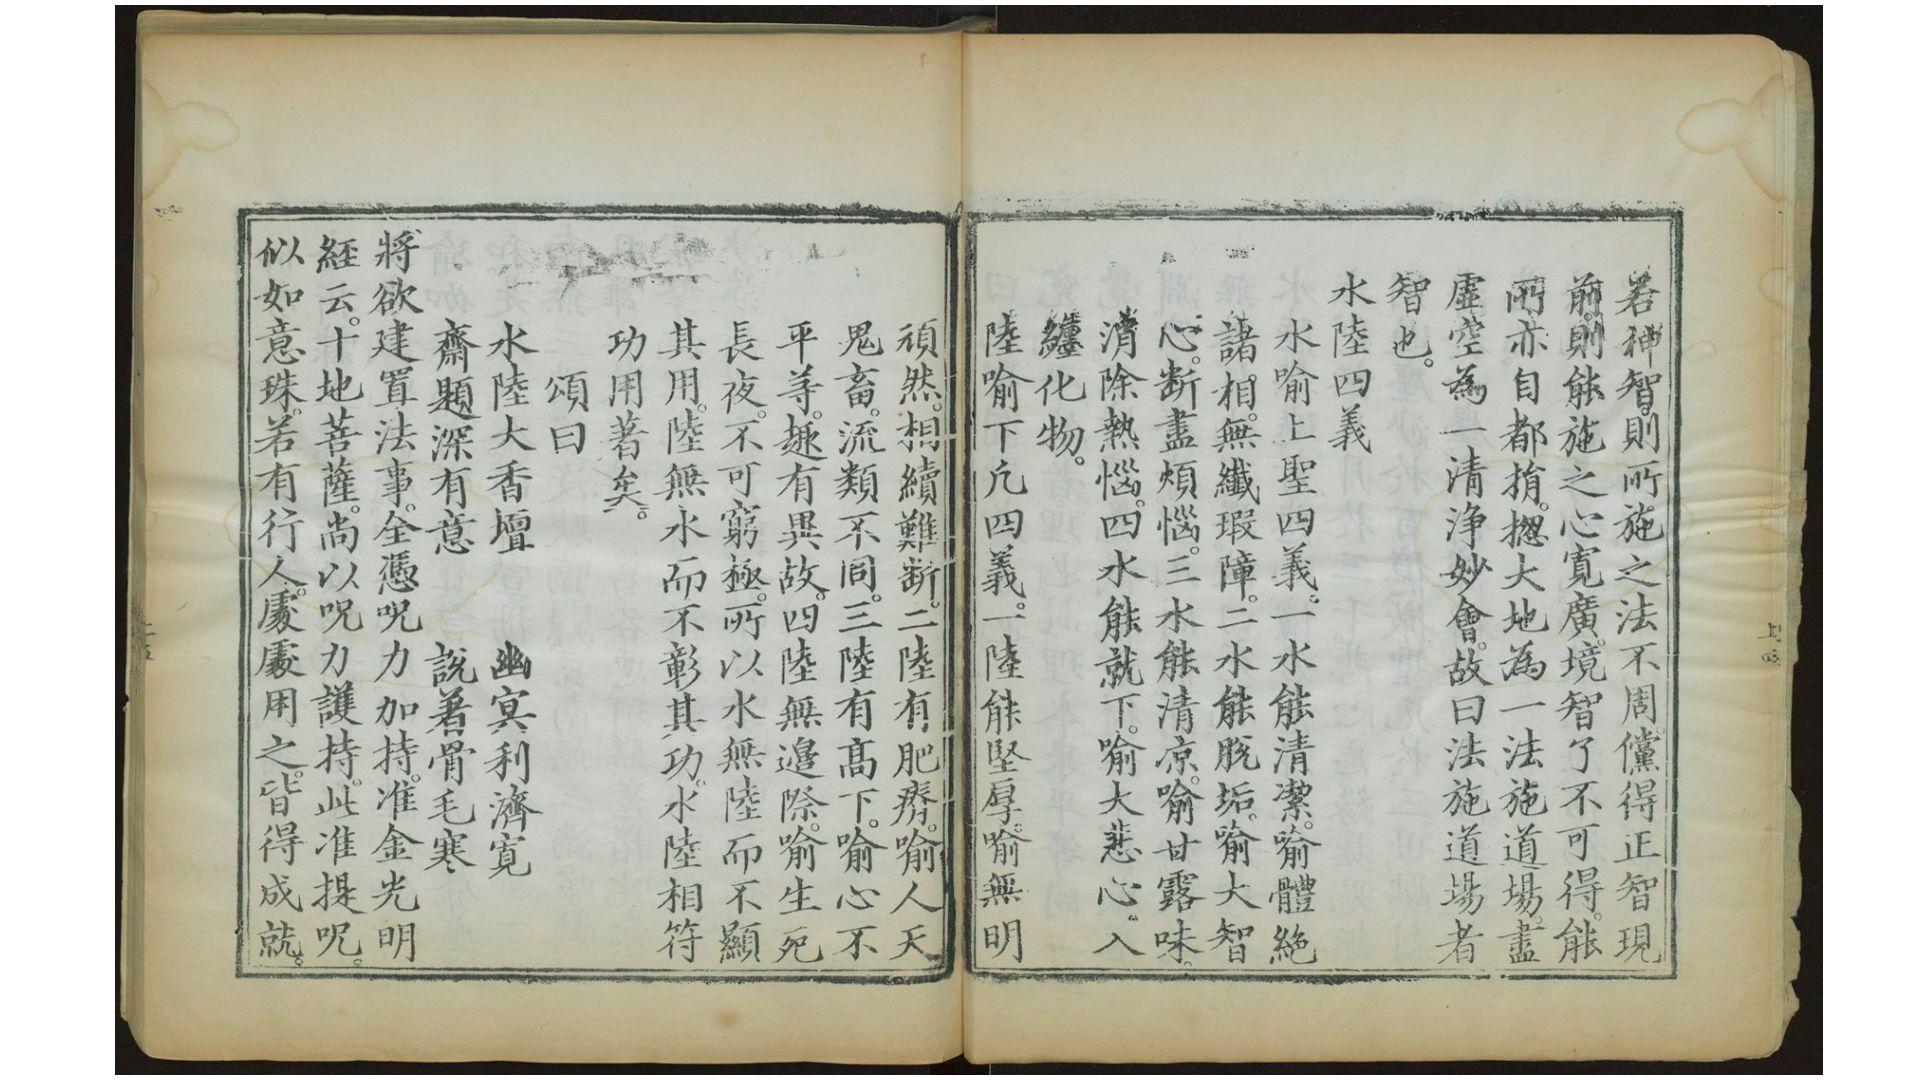 若神智。則所施之法不周。儻得正智現
前。則能施之心寬廣。境智了不可得。能
所亦自都捐。揔大地為一法施道場。盡
虛空為一清淨妙會。故曰法施道場者
智也。
水陸四義
水喻上聖四義。一水能清潔。喻體絶
諸相無纖瑕障。二水能脫垢。喻大智
心。断盡煩惱。三水能清凉。喻甘露味。
消除熱惱。四水能就下。喻大悲心。入
纏化物。
陸喻下凢四義。一陸能堅厚。喻無明
頑然。相續難断。二陸有肥瘠。喻人天
鬼畜。流類不同。三陸有髙下。喻心不
平等。趣有異故。四陸無邊際。喻生死
長夜。不可窮極。所以水無陸而不顯
其用。陸無水而不彰其功。水陸相符
功用著矣。
頌曰
水陸大香壇　幽冥利濟寛
齋題深有意　說著骨毛寒
將欲建置法事。全憑呪力加持。准金光明
経云。十地菩薩。尚以呪力護持。此准提呪。
似如意珠。若有行人。處處用之。皆得成就。
上四